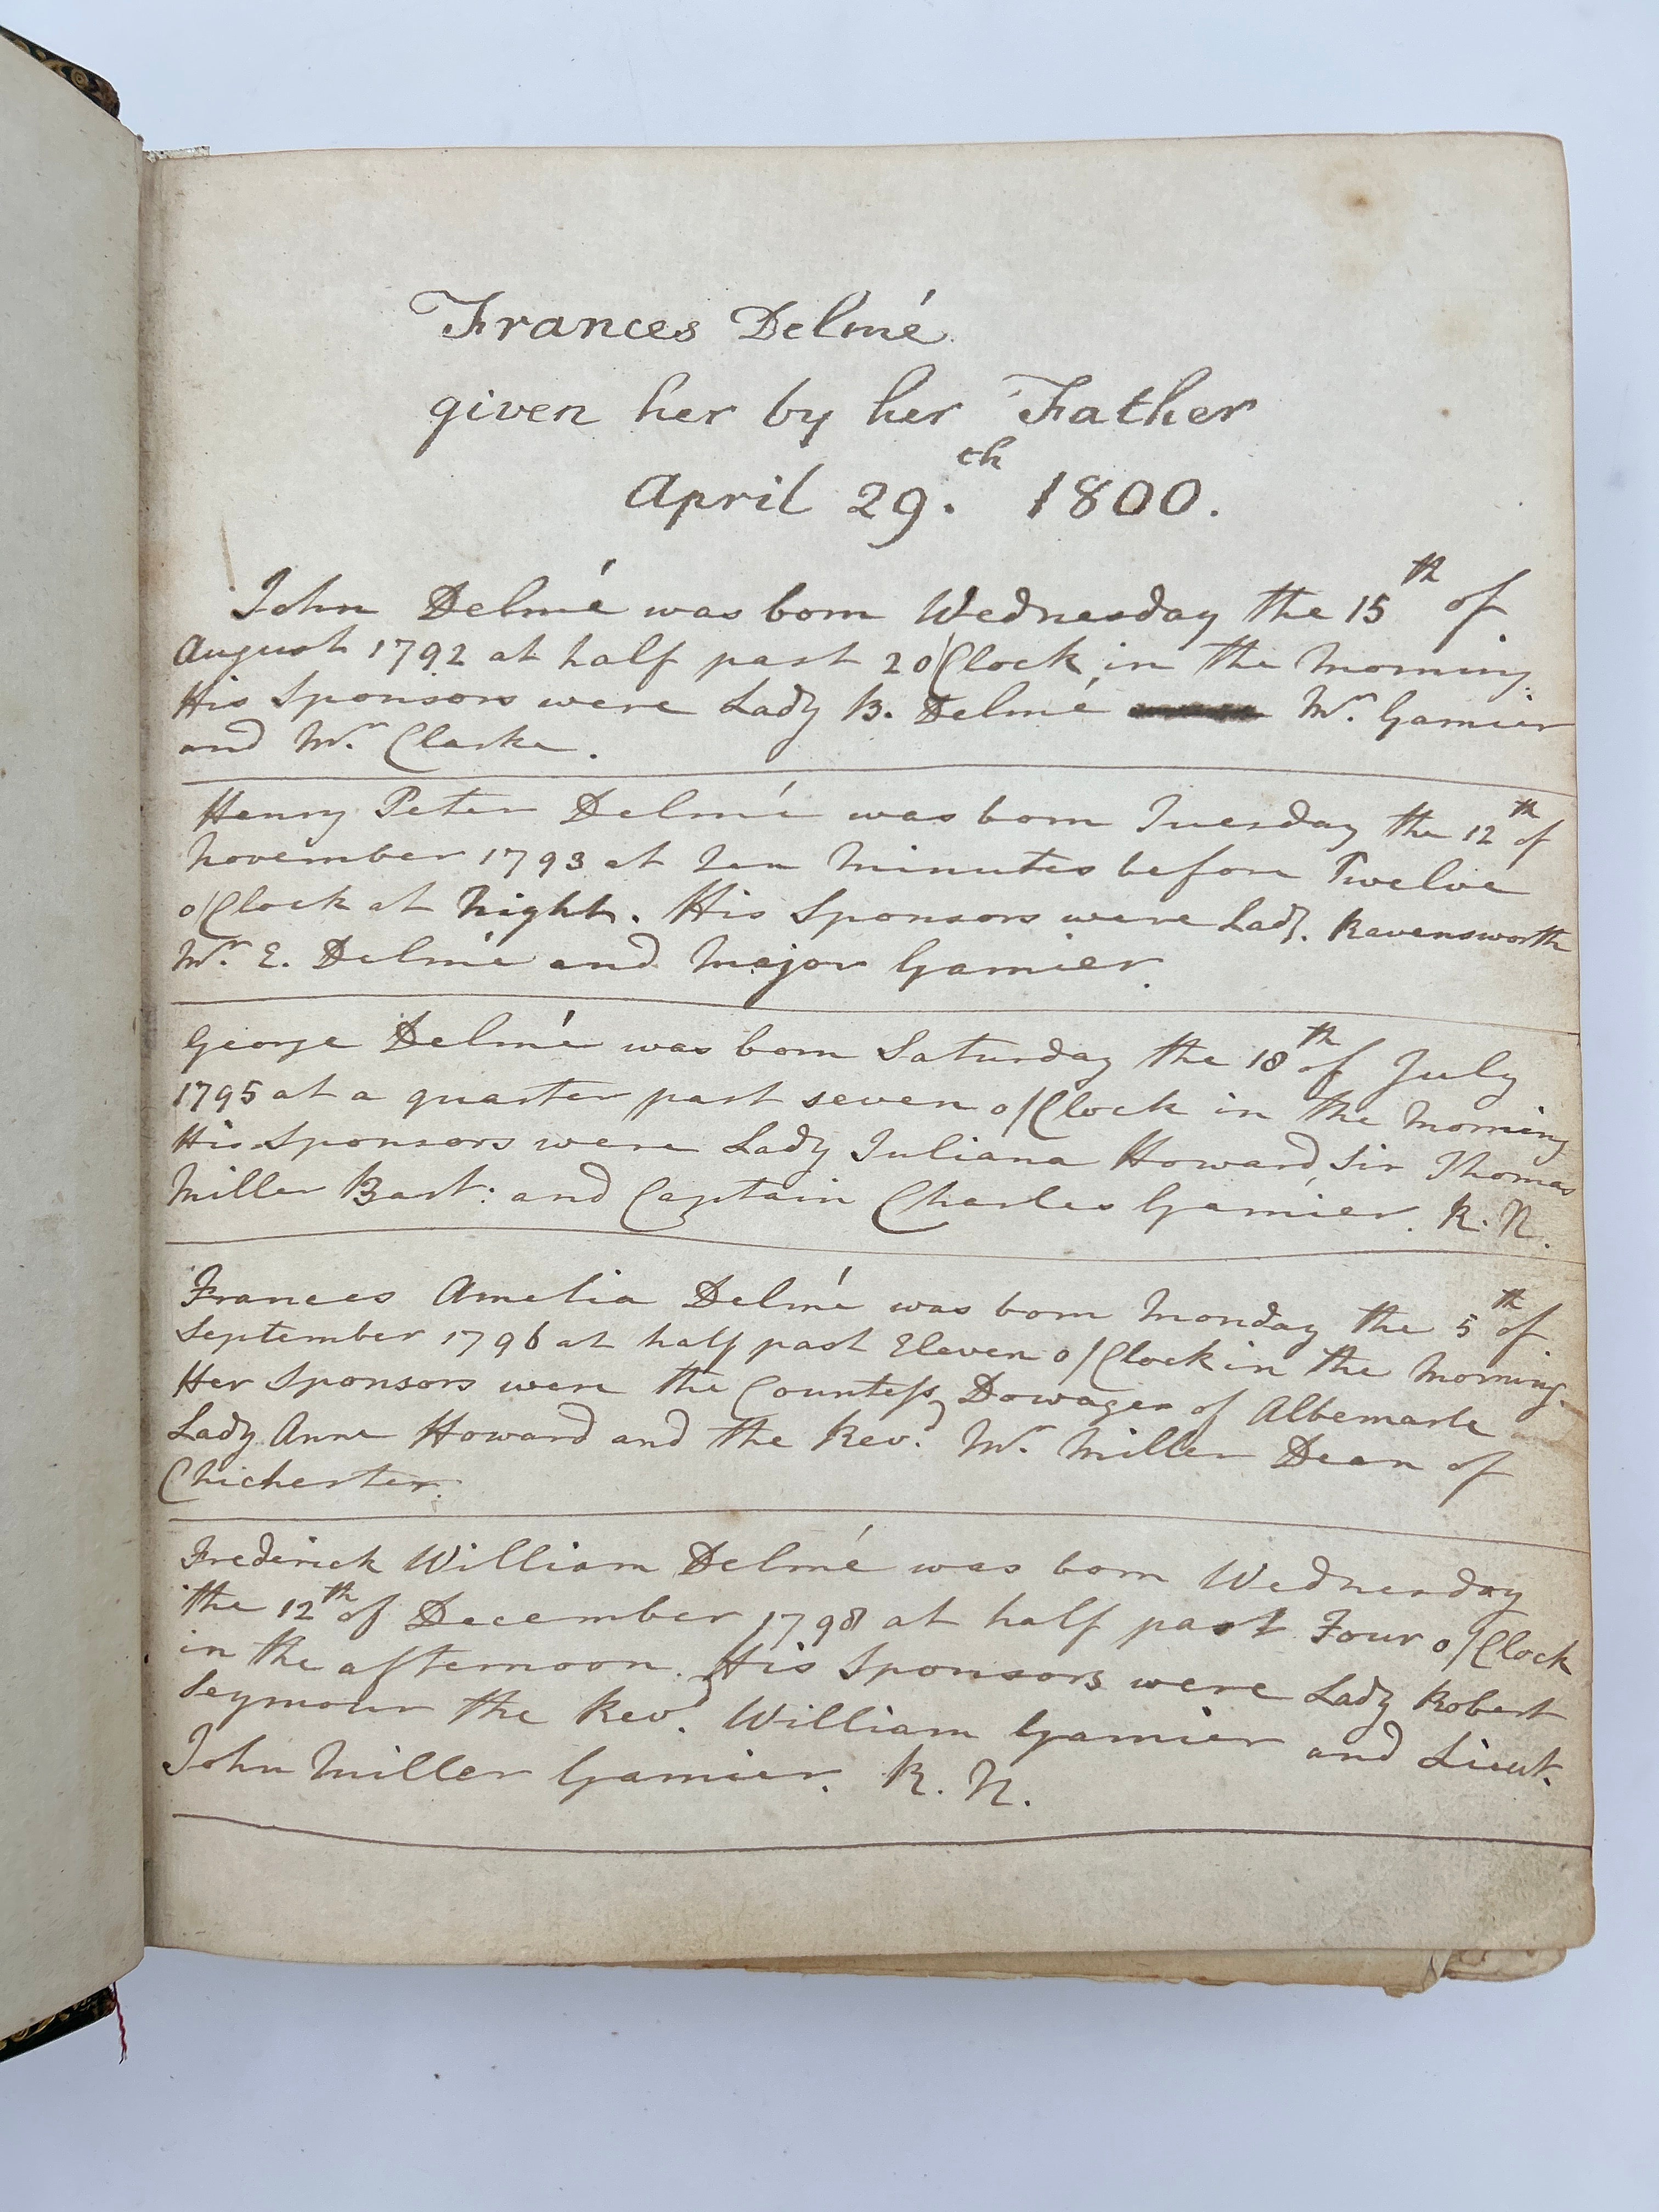 Frances Delmé
given her by her Father
April 29.th 1800.
John Delmé was born Wednesday the 15th of
August 1792 at half past 2 o'Clock in the Morning.
His Sponsors were Lady B. Delmé Mr. Garnier
and Mr. Clarke.
Henry Peter Delmé was born Tuesday the 12th of
November 1793 at ten Minutes before Twelve
o'Clock at Night. His Sponsors were Lady. Ravensworth
Mr. E. Delmé and Major Garnier.
George Delmé was born Saturday the 18th of July
1795 at a quarter past seven o'Clock in the Morning
His Sponsors were Lady Juliana Howard, Sir Thomas
Miller Bart: and Captain Charles Garnier. R. N.
Frances Amelia Delmé was born Monday the 5th of
September 1796 at half past Eleven o'Clock in the Morning.
Her Sponsors were the Countess Dowager of Albemarle
Lady Anne Howard and the Rev.d Mr. Miller Dean of
Chichester.
Frederick William Delmé was born Wednesday
the 12th of December 1798 at half past Four o'Clock
in the afternoon. His Sponsors were Lady Robert
Seymour the Rev.d William Garnier and Lieut.
John Miller Garnier. R. N.